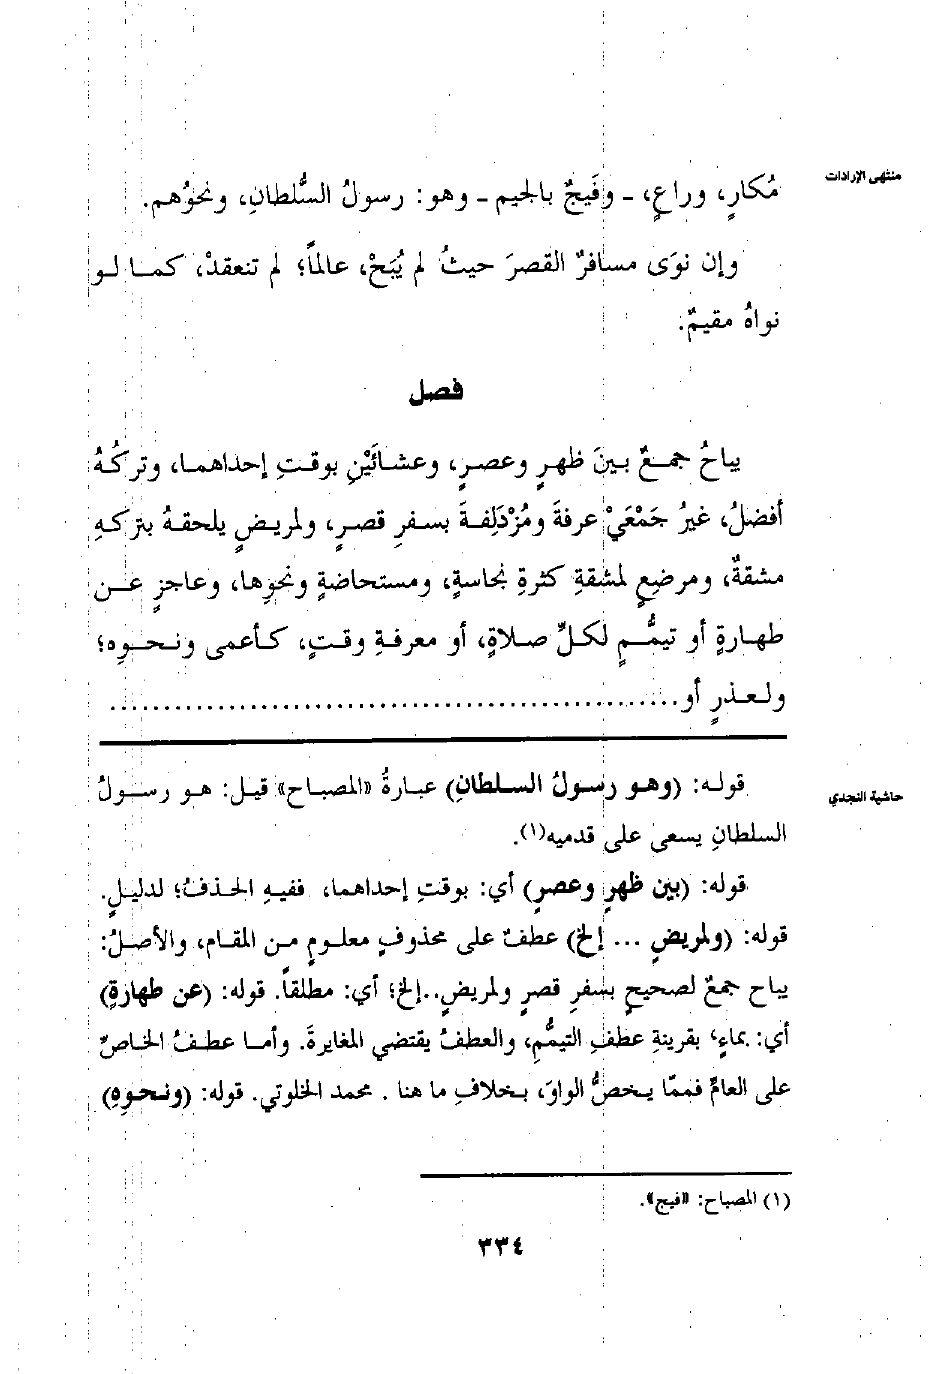 منتهى الإرادات
مُكارٍ، وراعٍ، ـ وفَيجٌ بالجيم ـ وهو: رسولُ السُّلطانِ، ونحوُهم.
وإن نوَى مسافرٌ القصرَ حيثُ لم يُبَحْ، عالماً؛ لم تنعقدْ، كما لو
نواهُ مقيمٌ.
فصل
يباحُ جمعٌ بينَ ظهرٍ وعصرٍ، وعشائَيْنِ بوقتِ إحداهما، وتركُهُ
أفضلُ، غيرُ جَمْعَيْ عرفةَ ومُزْدَلِفةَ بسفرِ قصرٍ، ولمريضٍ يلحقهُ بتركهِ
مشقةٌ، ومرضعٍ لمشقةِ كثرةِ نجاسةٍ، ومستحاضةٍ ونحوِها، وعاجزٍ عن
طهارةٍ أو تيمُّمٍ لكلِّ صلاةٍ، أو معرفةِ وقتٍ، كأعمى ونحوِه؛
ولعذرٍ أو....................................................
حاشية النجدي
قوله: (وهو رسولُ السلطانِ) عبارةُ «المصباح» قيل: هو رسولُ
السلطانِ يسعى على قدميه(١).
قوله: (بين ظهرٍ وعصرٍ) أي: بوقتِ إحداهما، ففيهِ الحذفُ؛ لدليلٍ.
قوله: (ولمريضٍ ... إلخ) عطفٌ على محذوفٍ معلومٍ من المقام، والأصلُ:
يباح جمعٌ لصحيحٍ بسفرِ قصرٍ ولمريضٍ..إلخ؛ أي: مطلقاً. قوله: (عن طهارةٍ)
أي: بماءٍ؛ بقرينةِ عطفِ التيمُّمِ، والعطفُ يقتضي المغايرةَ. وأما عطفُ الخاصِّ
على العامِّ فممّا يخصُّ الواوَ، بخلافِ ما هنا . محمد الخلوتي. قوله: (ونحوِهِ)
(١) المصباح: «فيج».
٣٣٤